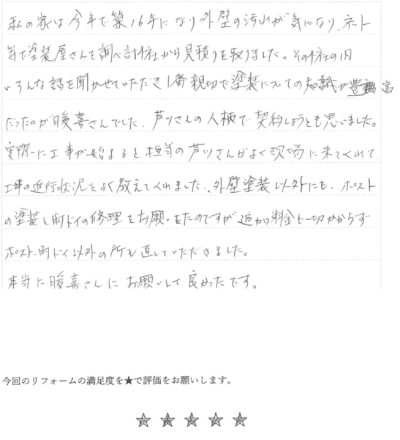 私の家は今年で築16年になり外壁の汚れが気になり、ネット
等で塗装屋さんを調べ計4社から見積りを取りました。その4社の内
いろんな話を聞かせていただき1番親切で塗装についての知識が豊富
だったのが暖喜さんでした。芦川さんの人柄で契約しようと思いました。
実際に工事が始まると担当の芦川さんがよく現場に来てくれて
工事の進行状況をよく教えてくれました。外壁塗装以外にも、ポスト
の塗装と雨トイの修理をお願いをしたのですが追加料金も一切かからず
ポスト、雨トイ以外の所も直していただきました。
本当に暖喜さんにお願いして良かったです。
今回のリフォームの満足度を★で評価をお願いします。
★★★★★